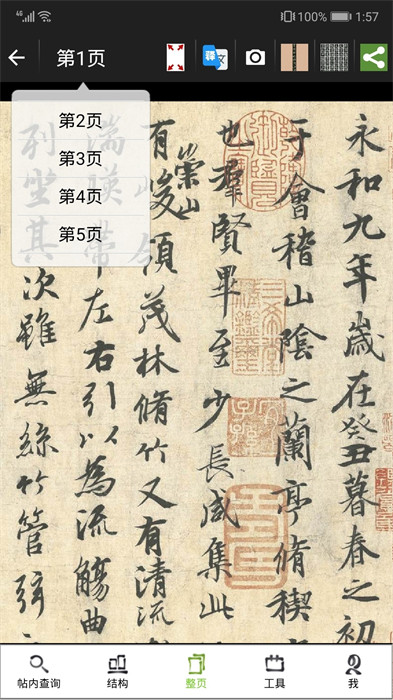 4G 100% 1:57
第1页
第2页
第3页
第4页
第5页
永和九年歲在癸丑暮春之初
于會稽山陰之蘭亭脩稧
也羣賢畢至少長咸集此
有崇山峻領茂林脩竹又有清流
湍暎帶左右引以為流觴曲
列坐其次雖無絲竹管弦
帖内查询 结构 整页 工具 我